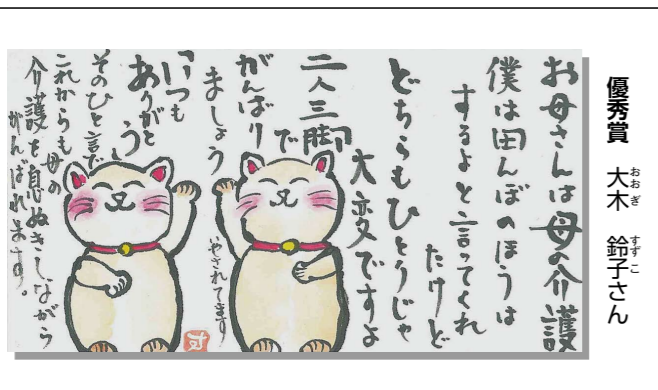 優秀賞 大木 鈴子さん
おおぎ すずこ
お母さんは母の介護
僕は田んぼのほうは
するよと言ってくれ
たけど
どちらもひとりじゃ
大変ですよ
二人三脚で
がんばり
ましょう
いつも
ありがとう
そのひと言で
やされてます
これからも母の
介護を息ぬきしながら
がんばれます。
す